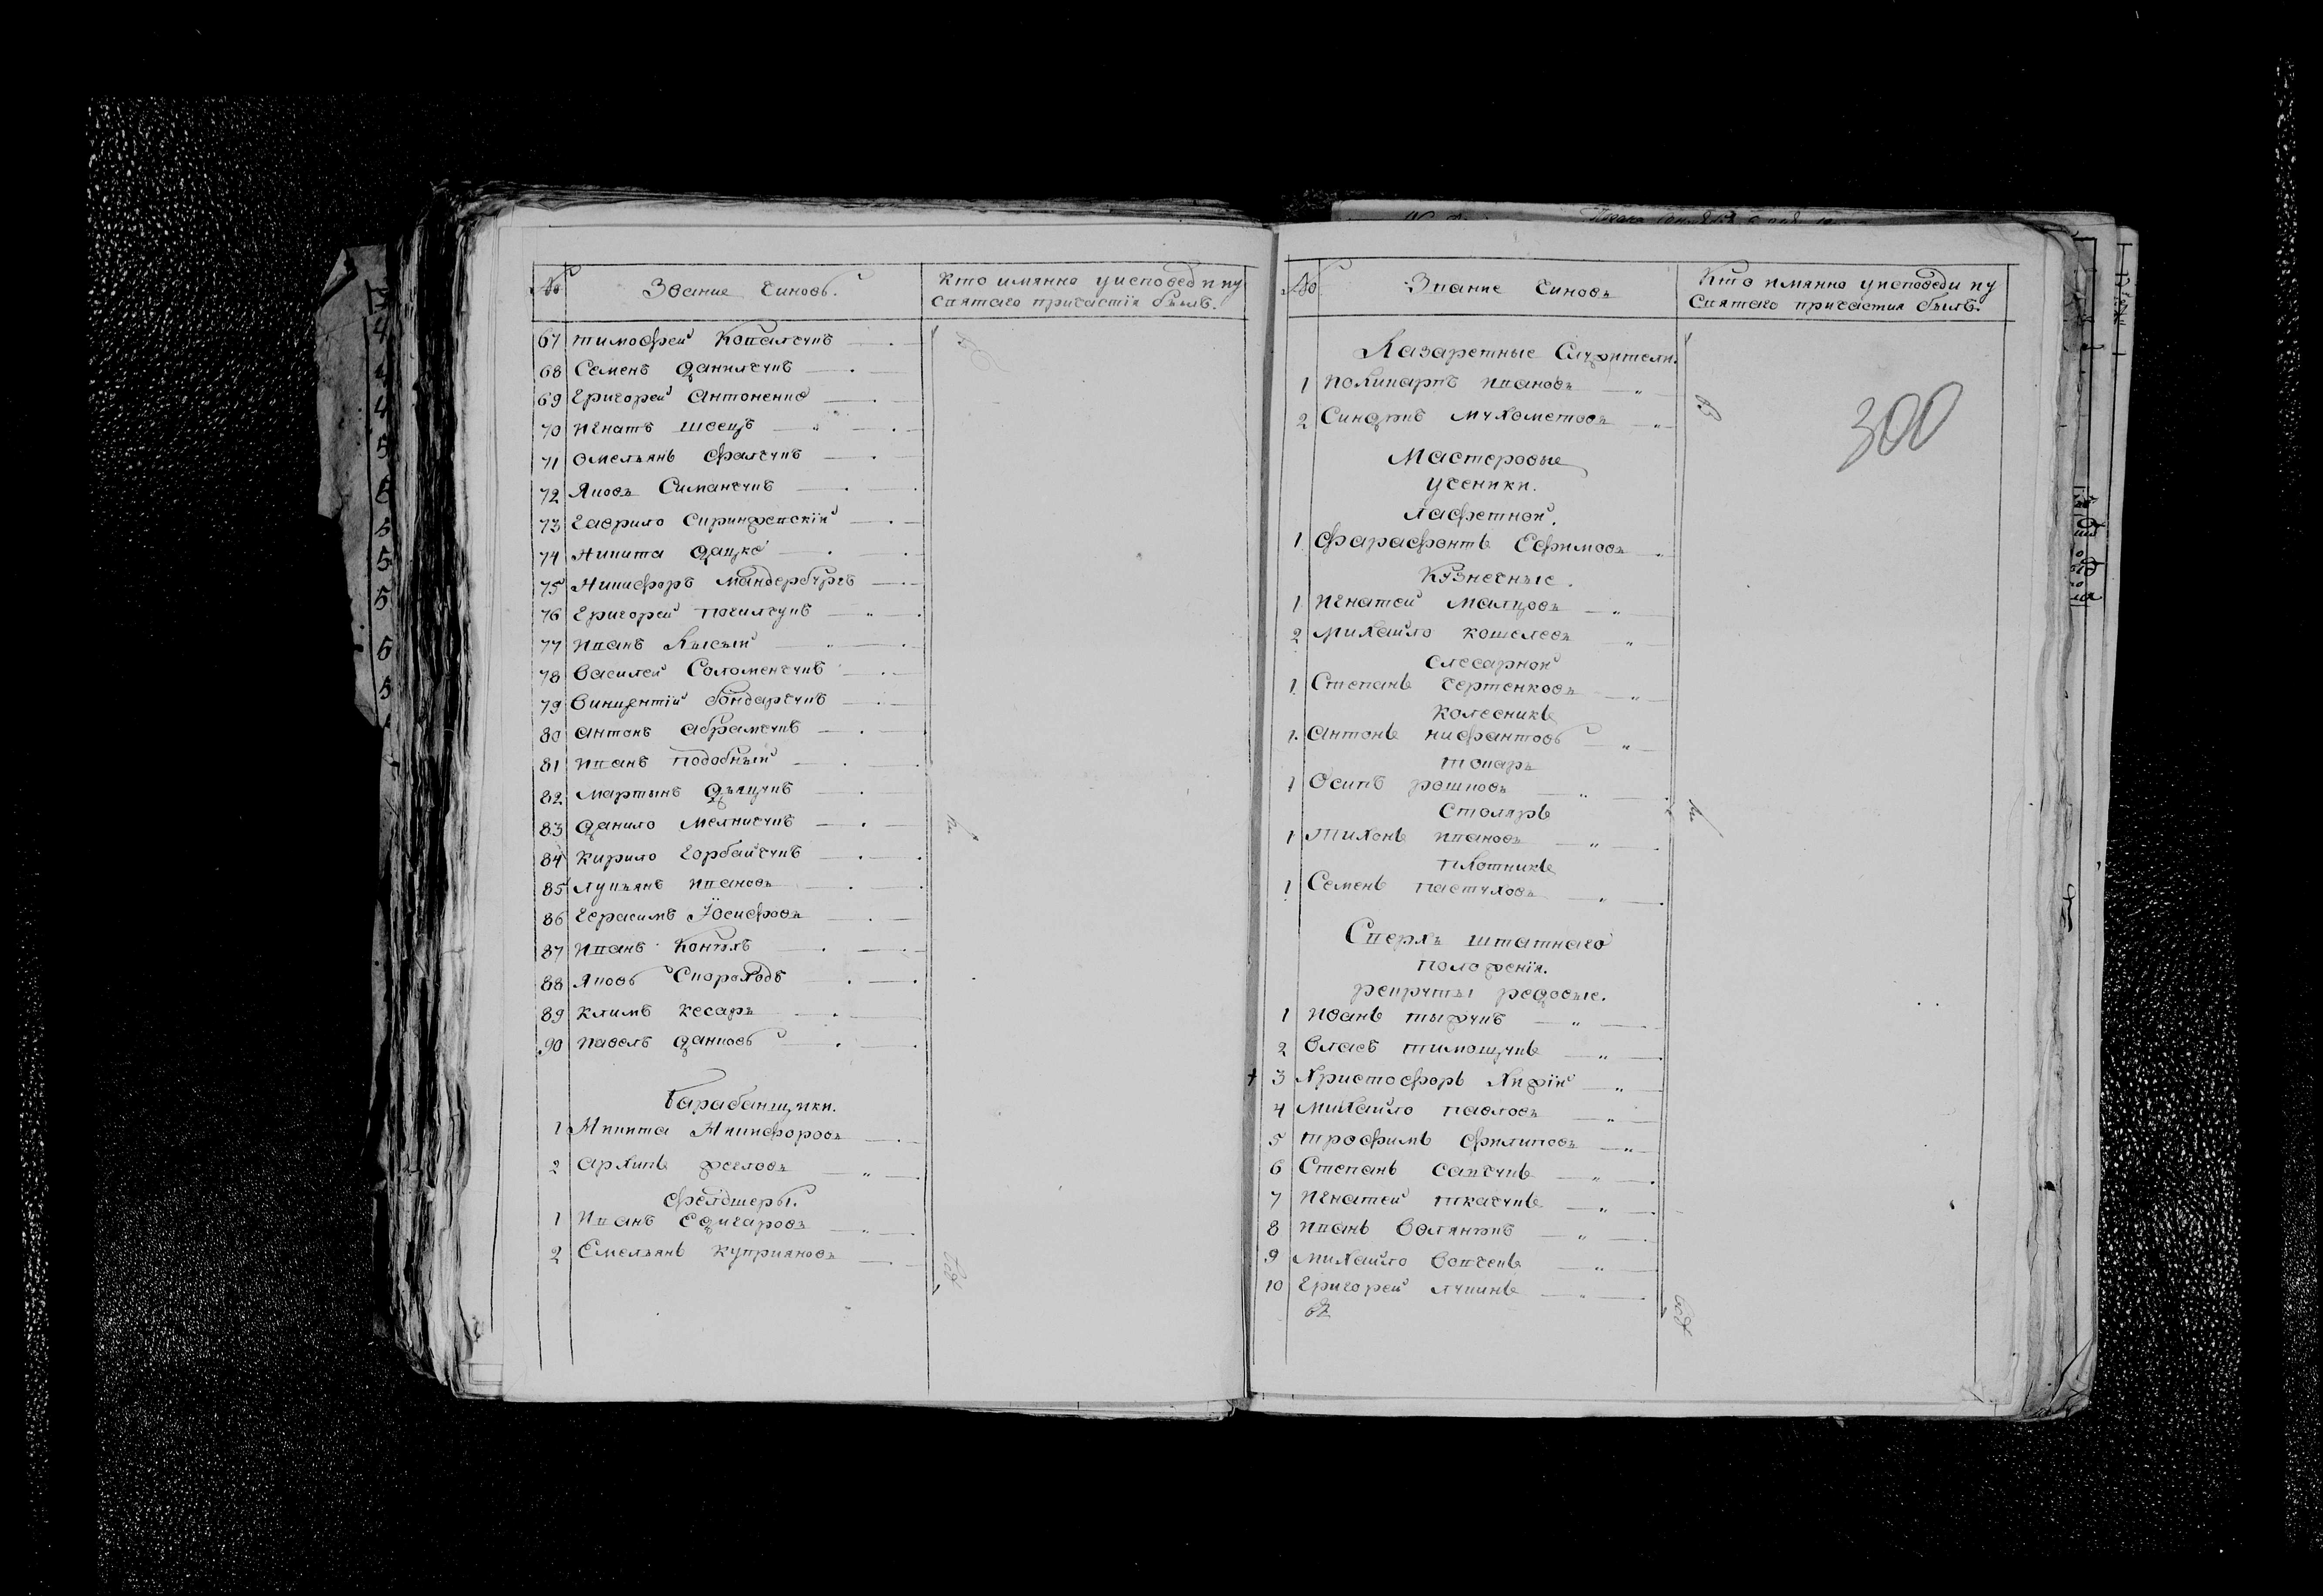 №
Звание Чиновъ.
Кто имянно у исповеди и у
Святаго причастія былъ.
67 Тимофей Ковальчукъ
68 Семенъ Данильчукъ
69 Григорей Антоненко
70 Игнатъ Швецъ
71 Омельянъ
72 Яковъ Симанчукъ
73 Гаврило
74 Никита Дацко
75 Никифоръ Мандербургъ
76 Григорей
77 Иванъ Лысый
78 Василей Соломенчукъ
79 Винцентій Бондарчукъ
80 Антонъ Абрамчукъ
81 Иванъ Подобный
82 Мартынъ
83 Данило Мелничукъ
84 Кирило Горбайчукъ
85 Лукьянъ Ивановъ
86 Герасимъ Іосифовъ
87 Иванъ
88 Яковъ Скороходъ
89 Климъ Кесарь
90 Павелъ Данковъ
Барабанщики.
1 Никита Никифоровъ
2 Архипъ Жегловъ
Фелдшеры.
1 Иванъ
2 Емельянъ Куприяновъ
№
Звание Чиновъ
Кто имянно у исповеди и у
Святаго причастия былъ.
Лазаретные Служители.
1 Поликарпъ Ивановъ
2 Мухаметовъ
300
Мастеровые
ученики.
Лафетной.
1 Фарафонтъ Ефимовъ
Кузнечные.
1 Игнатей Малцовъ
2 Михайло Кошелевъ
Слесарной
1 Степанъ Чертенковъ
Колесникъ
1 Антонъ Нифантовъ
Токарь
1 Осипъ Рошковъ
Столяръ
1 Тихонъ Ивановъ
Плотникъ
1 Семенъ Пастуховъ
Сверхъ штатнаго
положенія.
рекруты редовые.
1 Иванъ
2 Власъ Тимощукъ
3 Христофоръ
4 Михайло Павловъ
5 Трофимъ Филиповъ
6 Степанъ Савчукъ
7 Игнатей Ткачукъ
8 Иванъ
9 Михайло
10 Григорей